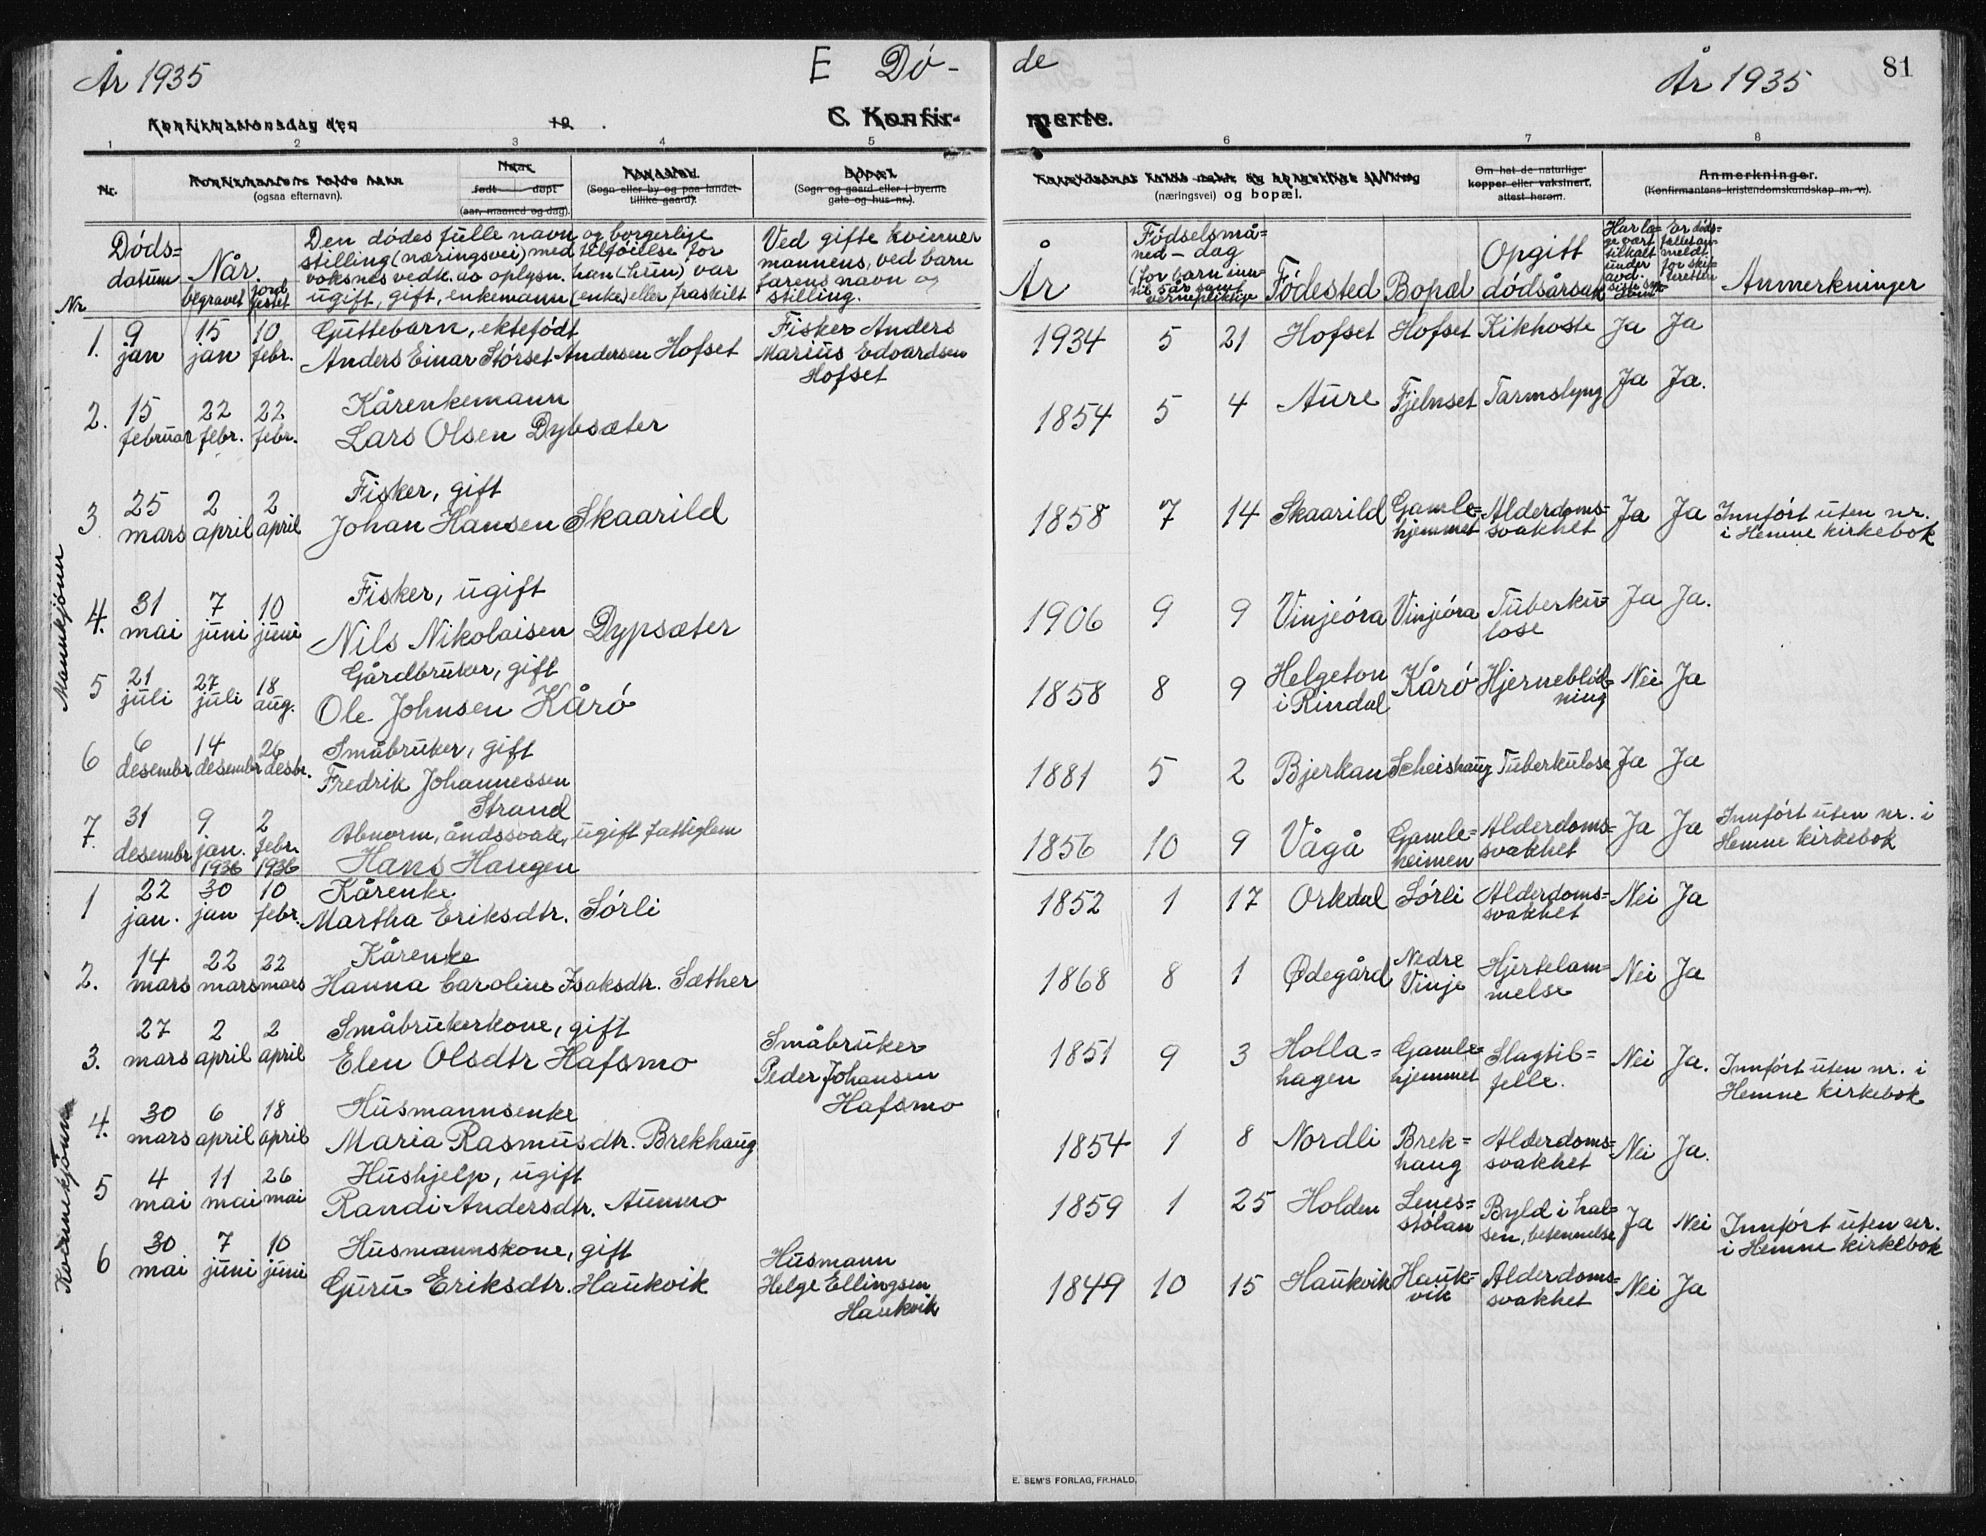 År 1935
E Dö-
de
År 1935
81
C. Konfir-
merte.
1 2 3 4 5
6 7 8
Nr.
(ogsaa efternavn).
født døpt
(aar, maaned og dag).
(Sogn eller by og paa landet
tillike gaard).
(Sogn og gaard eller i byerne
gate og hus-nr.).
(næringsvei) og bopæl.
Om hat de naturlige
kopper eller vaksinert,
attest herom.
Anmerkninger.
(Konfirmantens kristendomskundskap m. v.).
Nr
Döds-
datum
Når
begravet
jord
festet
Den dödes fulle navn og borgerlige
stilling (næringsvei) med tilföielse for
voksnes vedk. av oplysn. han (hun) var
ugift, gift, enkemann (enke) eller fraskilt
Ved gifte kvinner
mannens, ved barn
farens navn og
stilling.
År
Födselsmå=
ned - dag
(for barn
Födested
Bopæl
Opgitt
dödsårsak
Anmerkninger
Mannkjönn
1. 9 jan 15 jan 10 febr. Guttebarn, ektefödt
Anders Einar Störset Andersen Hofset
Fisker Anders
Marius Edvardsen
Hofset
1934 5 21 Hofset Hofset Kikhoste Ja Ja
2. 15 februar 22 febr. 22 febr. Kårenkemann
Lars Olsen Dybsæter
1854 5 4 Aure Fjelnset Tarmslyng Ja Ja.
3 25 mars 2 april 2 april Fisker, gift
Johan Hansen Skaarild
1858 7 14 Skaarild Gamle-
hjemmet
Alderdoms-
svakhet
Ja Ja Innfört uten nr.
i Hemne kirkebok
4. 31 mai 7 juni 10 juni Fisker, ugift
Nils Nikolaisen Dypsæter
1906 9 9 Vinjeöra Vinjeöra Tuberku-
lose
Ja Ja.
5 21 juli 27 juli 18 aug. Gårdbruker, gift
Ole Johnsen Kårö
1858 8 9 Helgeton
i Rindal
Kårö Hjerneblöd-
ning
Nei Ja
6 6 desembr 14 desembr 26 desbr. Småbruker, gift
Fredrik Johannessen
Strand
1881 5 2 Bjerkan Scheishaug Tuberkulose Ja Ja
7. 31 desembr 9 jan. 1936 2 febr. 1936 Abnorm, åndssvak, ugift fattiglem
Hans Haugen
1856 10 9 Vågå Gamle=
heimen
Alderdoms=
svakhet
Ja Ja Innfört uten nr. i
Hemne kirkebok
Kvinnekjönn
1 22 jan. 30 jan 10 febr. Kårenke
Martha Eriksdtr. Sörli
1852 1 17 Orkdal Sörli Alderdoms=
svakhet
Nei Ja
2. 14 mars 22 mars 22 mars Kårenke
Hanna Caroline Isaksdtr. Sæther
1868 8 1 Ødegård Nedre
Vinje
Hjertelam=
melse
Nei Ja
3. 27 mars 2 april 2 april Småbrukerkone, gift
Elen Olsdtr Hafsmo
Småbruker
Peder Johansen
Hafsmo
1851 9 3 Holla=
hagen
Gamle=
hjemmet
Slagtil=
felle.
Nei Ja. Innfört uten nr. i
Hemne kirkebok
4. 30 mars 6 april 18 april Husmannsenke
Maria Rasmusdtr. Brekhaug
1854 1 8 Nordli Brek=
haug
Alderdoms=
svakhet
Nei Ja.
5 4 mai 11 mai 26 mai Hushjelp, ugift
Randi Andersdtr. Aunmo
1859 1 25 Holden Lenes=
stölan
Byld i hal=
sen, betennelse
Ja Nei Innfört uten nr.
i Hemne kirkebok
6 30 mai 7 juni 10 juni Husmannskone, gift
Guru Eriksdtr. Haukvik
Husmann
Helge Ellingsen
Haukvik
1849 10 15 Haukvik Hauk=
vik
Alderdoms=
svakhet
Nei Ja
E. SEM'S FORLAG, FR.HALD.